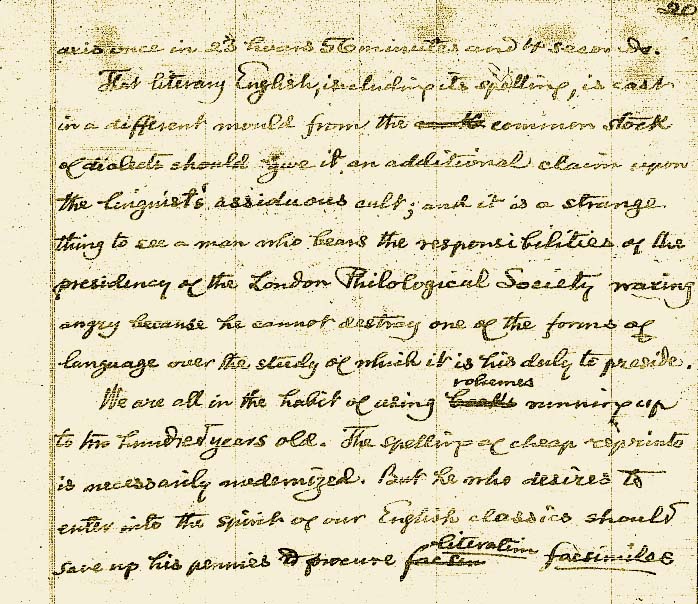 20
axis once in 23 hours 56 minutes and 4 seconds.
That literary English, including its spelling, is cast
in a different mould from the common stock
of dialects should give it an additional claim upon
the linguist's assiduous cult; and it is a strange
thing to see a man who bears the responsibilities of the
presidency of the London Philological Society waxing
angry because he cannot destroy one of the forms of
language over the study of which it is his duty to preside.
volumes
We are all in the habit of using books running up
to two hundred years old. The spelling of cheap reprints
is necessarily modernized. But he who desires to
enter into the spirit of our English classics should
literatim
save up his pennies to procure facsim facsimiles